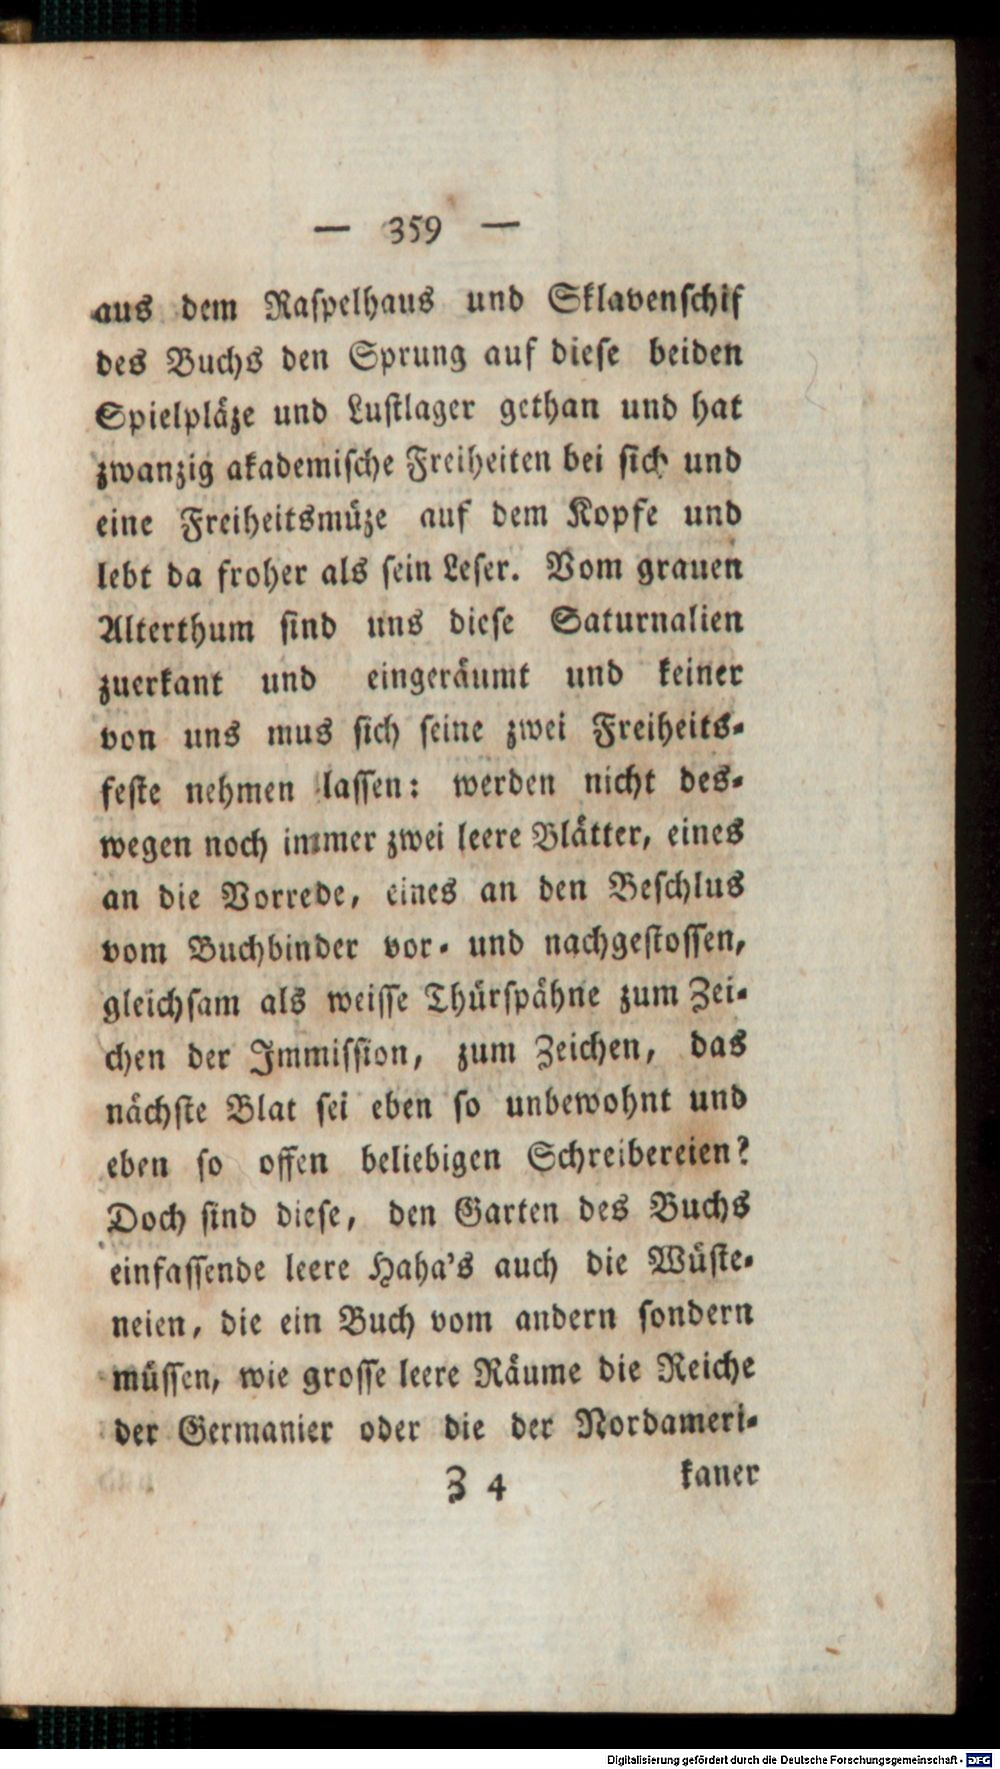 — 359 —
aus dem Raspelhaus und Sklavenschif
des Buchs den Sprung auf diese beiden
Spielpläze und Lustlager gethan und hat
zwanzig akademische Freiheiten bei sich und
eine Freiheitsmüze auf dem Kopfe und
lebt da froher als sein Leser. Vom grauen
Alterthum sind uns diese Saturnalien
zuerkant und eingeräumt und keiner
von uns mus sich seine zwei Freiheits-
feste nehmen lassen: werden nicht des-
wegen noch immer zwei leere Blätter, eines
an die Vorrede, eines an den Beschlus
vom Buchbinder vor- und nachgestossen,
gleichsam als weisse Thürspähne zum Zei-
chen der Immission, zum Zeichen, das
nächste Blat sei eben so unbewohnt und
eben so offen beliebigen Schreibereien?
Doch sind diese, den Garten des Buchs
einfassende leere Haha's auch die Wüste-
neien, die ein Buch vom andern sondern
müssen, wie grosse leere Räume die Reiche
der Germanier oder die der Nordameri-
Z 4 kaner
Digitalisierung gefördert durch die Deutsche Forschungsgemeinschaft - DFG